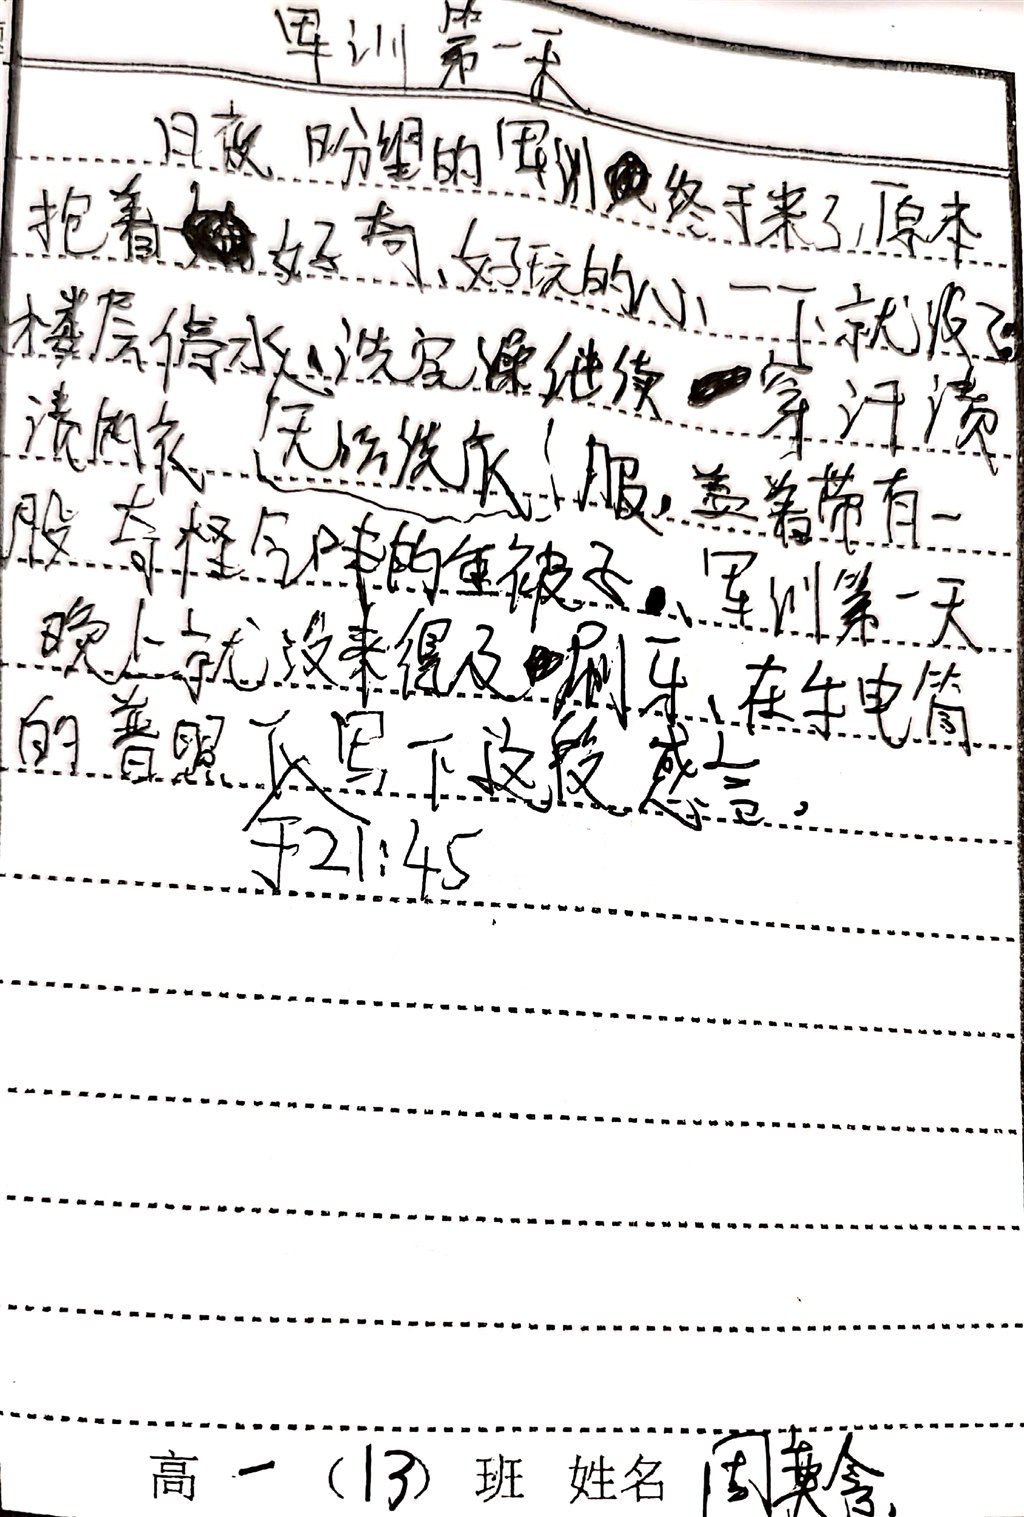 军训第一天
日夜盼望的军训终于来了,原本
抱着好奇、好玩的心、一下就没了。
楼层停水、洗完澡继续穿汗渍
渍的衣 无法洗衣服,盖着带有一
股奇怪气味的重被子、军训第一天
晚上就没来得及刷牙、在手电筒
的普照下写下这段感言。
于21:45
高一(13)班 姓名 周英含